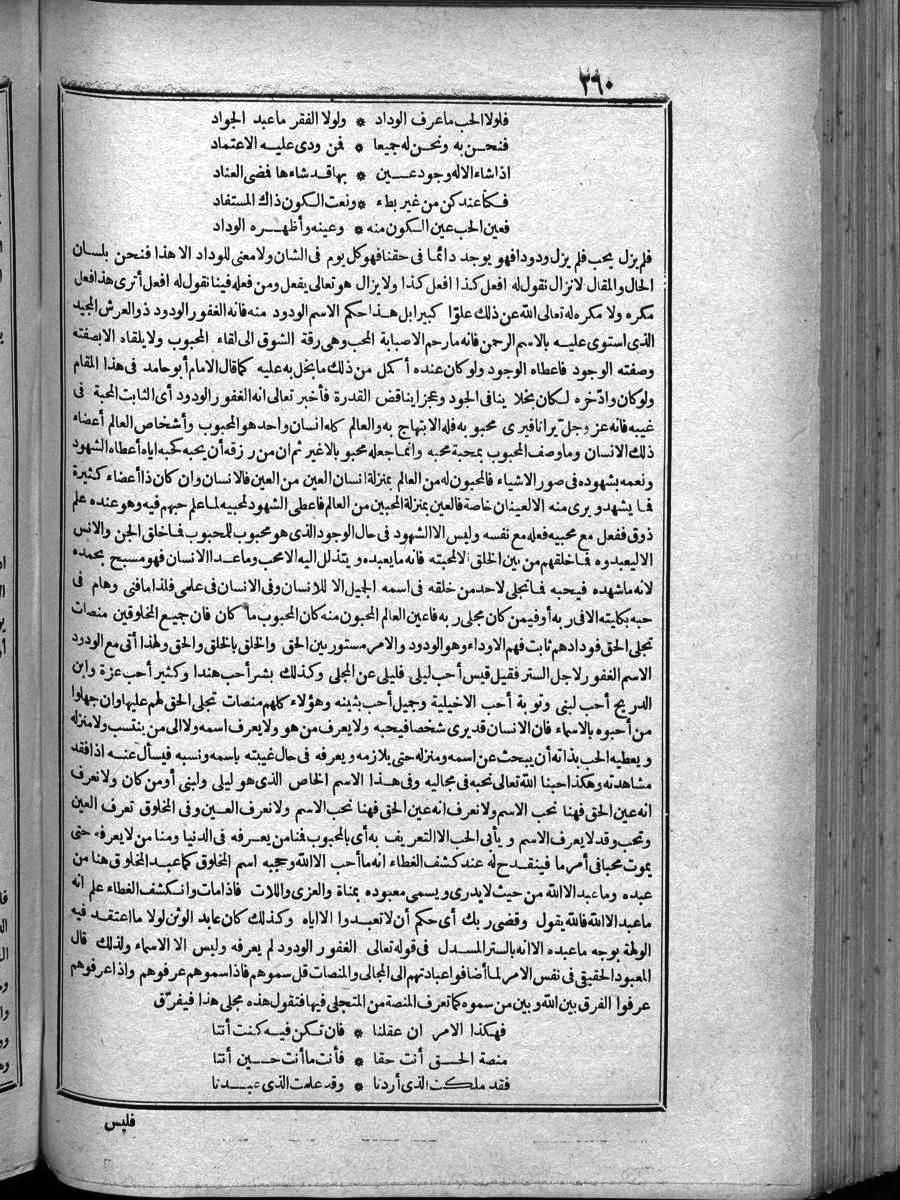 ٢٦٠
فلولا الحب ما عرف الوداد * ولولا الفقر ما عبد الجواد
فنحن به ونحن له جميعا * فمن ودى عليه الاعتماد
اذا شاء الاله وجود عين * بها قد شاءها فضى العناد
فكنا عند كن من غير بطء * ونعت الكون ذاك المستفاد
فعين الحب عين الكون منه * وعينه وأظهره الوداد
فلم يزل يحب فلم يزل ودودا فهو يوجد دائما فى حقنا فهو كل يوم فى الشان ولا معنى للوداد الا هذا فنحن بلسان
الحال والمقال لا نزال نقول له افعل كذا افعل كذا ولا يزال هو تعالى يفعل ومن فعله فينا نقول له افعل أترى هذا فعل
مكره ولا مكره له تعالى الله عن ذلك علوّا كبيرا بل هذا حكم الاسم الودود منه فانه الغفور الودود ذو العرش المجيد
الذى استوى عليه بالاسم الرحمن فانه ما رحم الا صبابة المحب وهى رقة الشوق الى لقاء المحبوب ولا يلقاه الا بصفته
وصفته الوجود فاعطاه الوجود ولو كان عنده أكمل من ذلك ما بخل به عليه كما قال الامام أبو حامد فى هذا المقام
ولو كان وادّخره لكان بخلا ينافى الجود وعجزا يناقض القدرة فأخبر تعالى انه الغفور الودود أى الثابت المحبة فى
غيبه فانه عز وجل يرانا فيرى محبوبه فله الابتهاج به والعالم كله انسان واحد هو المحبوب وأشخاص العالم أعضاء
ذلك الانسان وما وصف المحبوب بمحبة محبه وانما جعله محبوبا لا غير ثم ان من رزقه أن يحبه كحبه اياه أعطاه الشهود
ونعمه بشهوده فى صور الاشياء فالمحبون له من العالم بمنزلة انسان العين من العين فالانسان وان كان ذا أعضاء كثيرة
فما يشهد ويرى منه الا العينان خاصة فالعين بمنزلة المحبين من العالم فاعطى الشهود لمحبيه لما علم حبهم فيه وهو عنده علم
ذوق ففعل مع محبيه فعله مع نفسه وليس الا الشهود فى حال الوجود الذى هو محبوب للمحبوب فما خلق الجن والانس
الا ليعبدوه فما خلقهم من بين الخلق الا لمحبته فانه ما يعبده ويتذلل اليه الا محب وما عدا الانسان فهو مسبح بحمده
لانه ما شهده فيحبه فما تجلى لاحد من خلقه فى اسمه الجميل الا للانسان وفى الانسان فى علمى فلذا ما فنى وهام فى
حبه بكليته الا فى ربه أو فيمن كان مجلى ربه فاعين العالم المحبون منه كان المحبوب ما كان فان جميع المخلوقين منصات
تجلى الحق فودادهم ثابت فهم الاوداء وهو الودود والامر مستور بين الحق والخلق بالخلق والحق ولهذا أتى مع الودود
الاسم الغفور لاجل الستر فقيل قيس أحب ليلى فليلى عن المجلى وكذلك بشر أحب هندا وكثير أحب عزة وابن
الدريج أحب لبنى وتوبة أحب الاخيلية وجميل أحب بثينه وهؤلاء كلهم منصات تجلى الحق لهم عليها وان جهلوا
من أحبوه بالاسماء فان الانسان قد يرى شخصا فيحبه ولا يعرف من هو ولا يعرف اسمه ولا الى من ينتسب ولا منزله
ويعطيه الحب بذاته أن يبحث عن اسمه ومنزله حتى يلازمه ويعرفه فى حال غيبته باسمه ونسبه فيسأل عنه اذا فقد
مشاهدته وهكذا حبنا الله تعالى نحبه فى مجاليه وفى هذا الاسم الخاص الذى هو ليلى ولبنى أو من كان ولا نعرف
انه عين الحق فهنا نحب الاسم ولا نعرف انه عين الحق فهنا نحب الاسم ولا نعرف العين وفى المخلوق تعرف العين
وتحب وقد لا يعرف الاسم ويأبى الحب الا التعريف به أى بالمحبوب فمنا من يعرفه فى الدنيا ومنا من لا يعرفه حتى
يموت محبا فى أمر ما فينقدح له عند كشف الغطاء انه ما أحب الا الله وحجبه اسم المخلوق كما عبد المخلوق هنا من
عبده وما عبد الا الله من حيث لا يدرى ويسمى معبوده بمناة والعزى واللات فاذا مات وانكشف الغطاء علم انه
ما عبد الا الله فالله يقول وقضى ربك أى حكم أن لا تعبدوا الا اياه وكذلك كان عابد الوثن لولا ما اعتقد فيه
الوهة بوجه ما عبده الا انه بالستر المسدل فى قوله تعالى الغفور الودود لم يعرفه وليس الا الاسماء ولذلك قال
المعبود الحقيقى فى نفس الامر لما أضافوا عبادتهم الى المجالى والمنصات قل سموهم فاذا سموهم عرفوهم واذا عرفوهم
عرفوا الفرق بين الله وبين من سموه كما تعرف المنصة من المتجلى فيها فتقول هذه مجلى هذا فيفرّق
فهكذا الامر ان عقلنا * فان تكن فيه كنت أنتا
منصة الحق أنت حقا * فأنت ما أنت حين أنتا
فقد ملكت الذى أردنا * وقد علمت الذى عبدنا
فليس